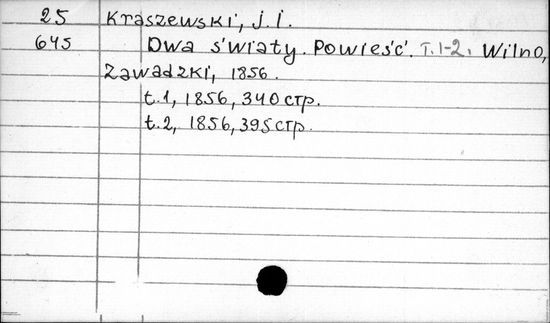 25 Kraszewski, J. I.
645 Dwa s'wiaty. Powies'c'. T.1-2. Wilno,
Zawadzki, 1856.
t.1, 1856, 340 стр.
t.2, 1856, 395 стр.